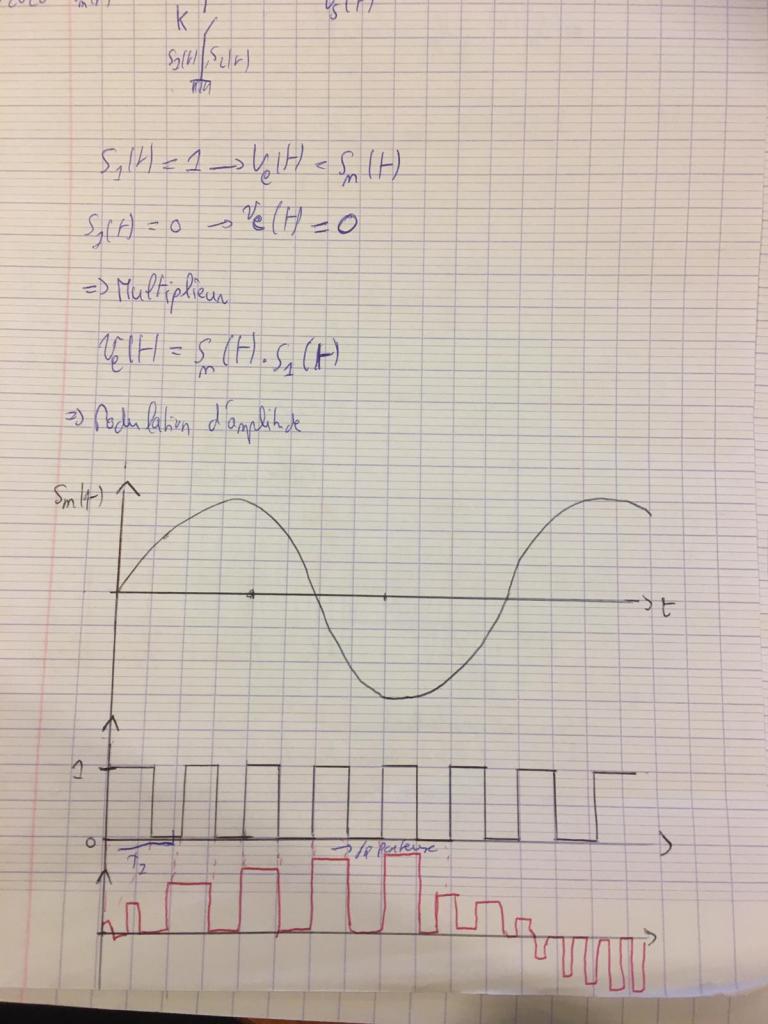 K
S₁(t) = 1 → Ve(t) = Sm(t)
S₁(t) = 0 → Ve(t) = 0
=> Multiplieur
Ve(t) = Sm(t) . S₁(t)
=> Modulation d'amplitude
Sm(t)
t
1
0
→ la porteuse